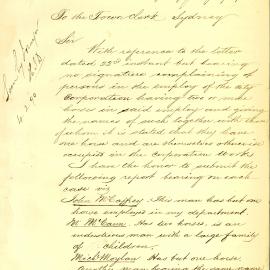 To the Town Clerk, Sydney
Sir
With reference to the letter
dated 22nd instant but bearing
no signature complaining of
persons in the employ of the City
Corporation having two or more
horses in said employ and giving
the names of such together with those
of whom it is stated that they have
one horse and are themselves otherwise
occupied in the Corporation works
I have the honor to submit the
following report bearing on each
case viz
John McCaffrey. This man has but one
horse employed in my department.
W. McCann. Has two horses, is an
industrious man with a large family
of children.
Mich Moylan. Has but one horse.
Another man bearing the same name
4.2.90